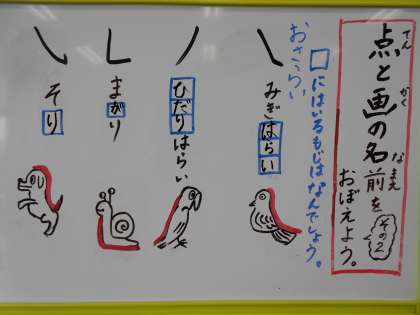 点と画の名前を
てん
かく
なまえ
おぼえよう。
その2
おさらい
□にはいるもじはなんでしょう。
みぎはらい
ひだりはらい
まがり
そり